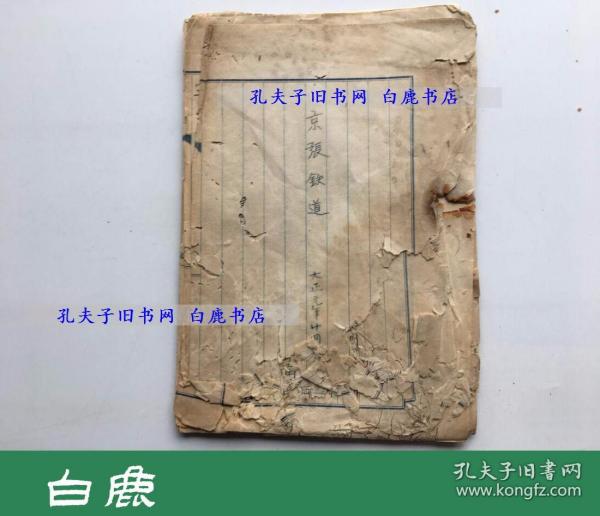 孔夫子旧书网 白鹿书店
京張鉄道
大正元年十月
孔夫子旧书网 白鹿书店
白鹿
孔夫子旧書网
www.kongfz.com